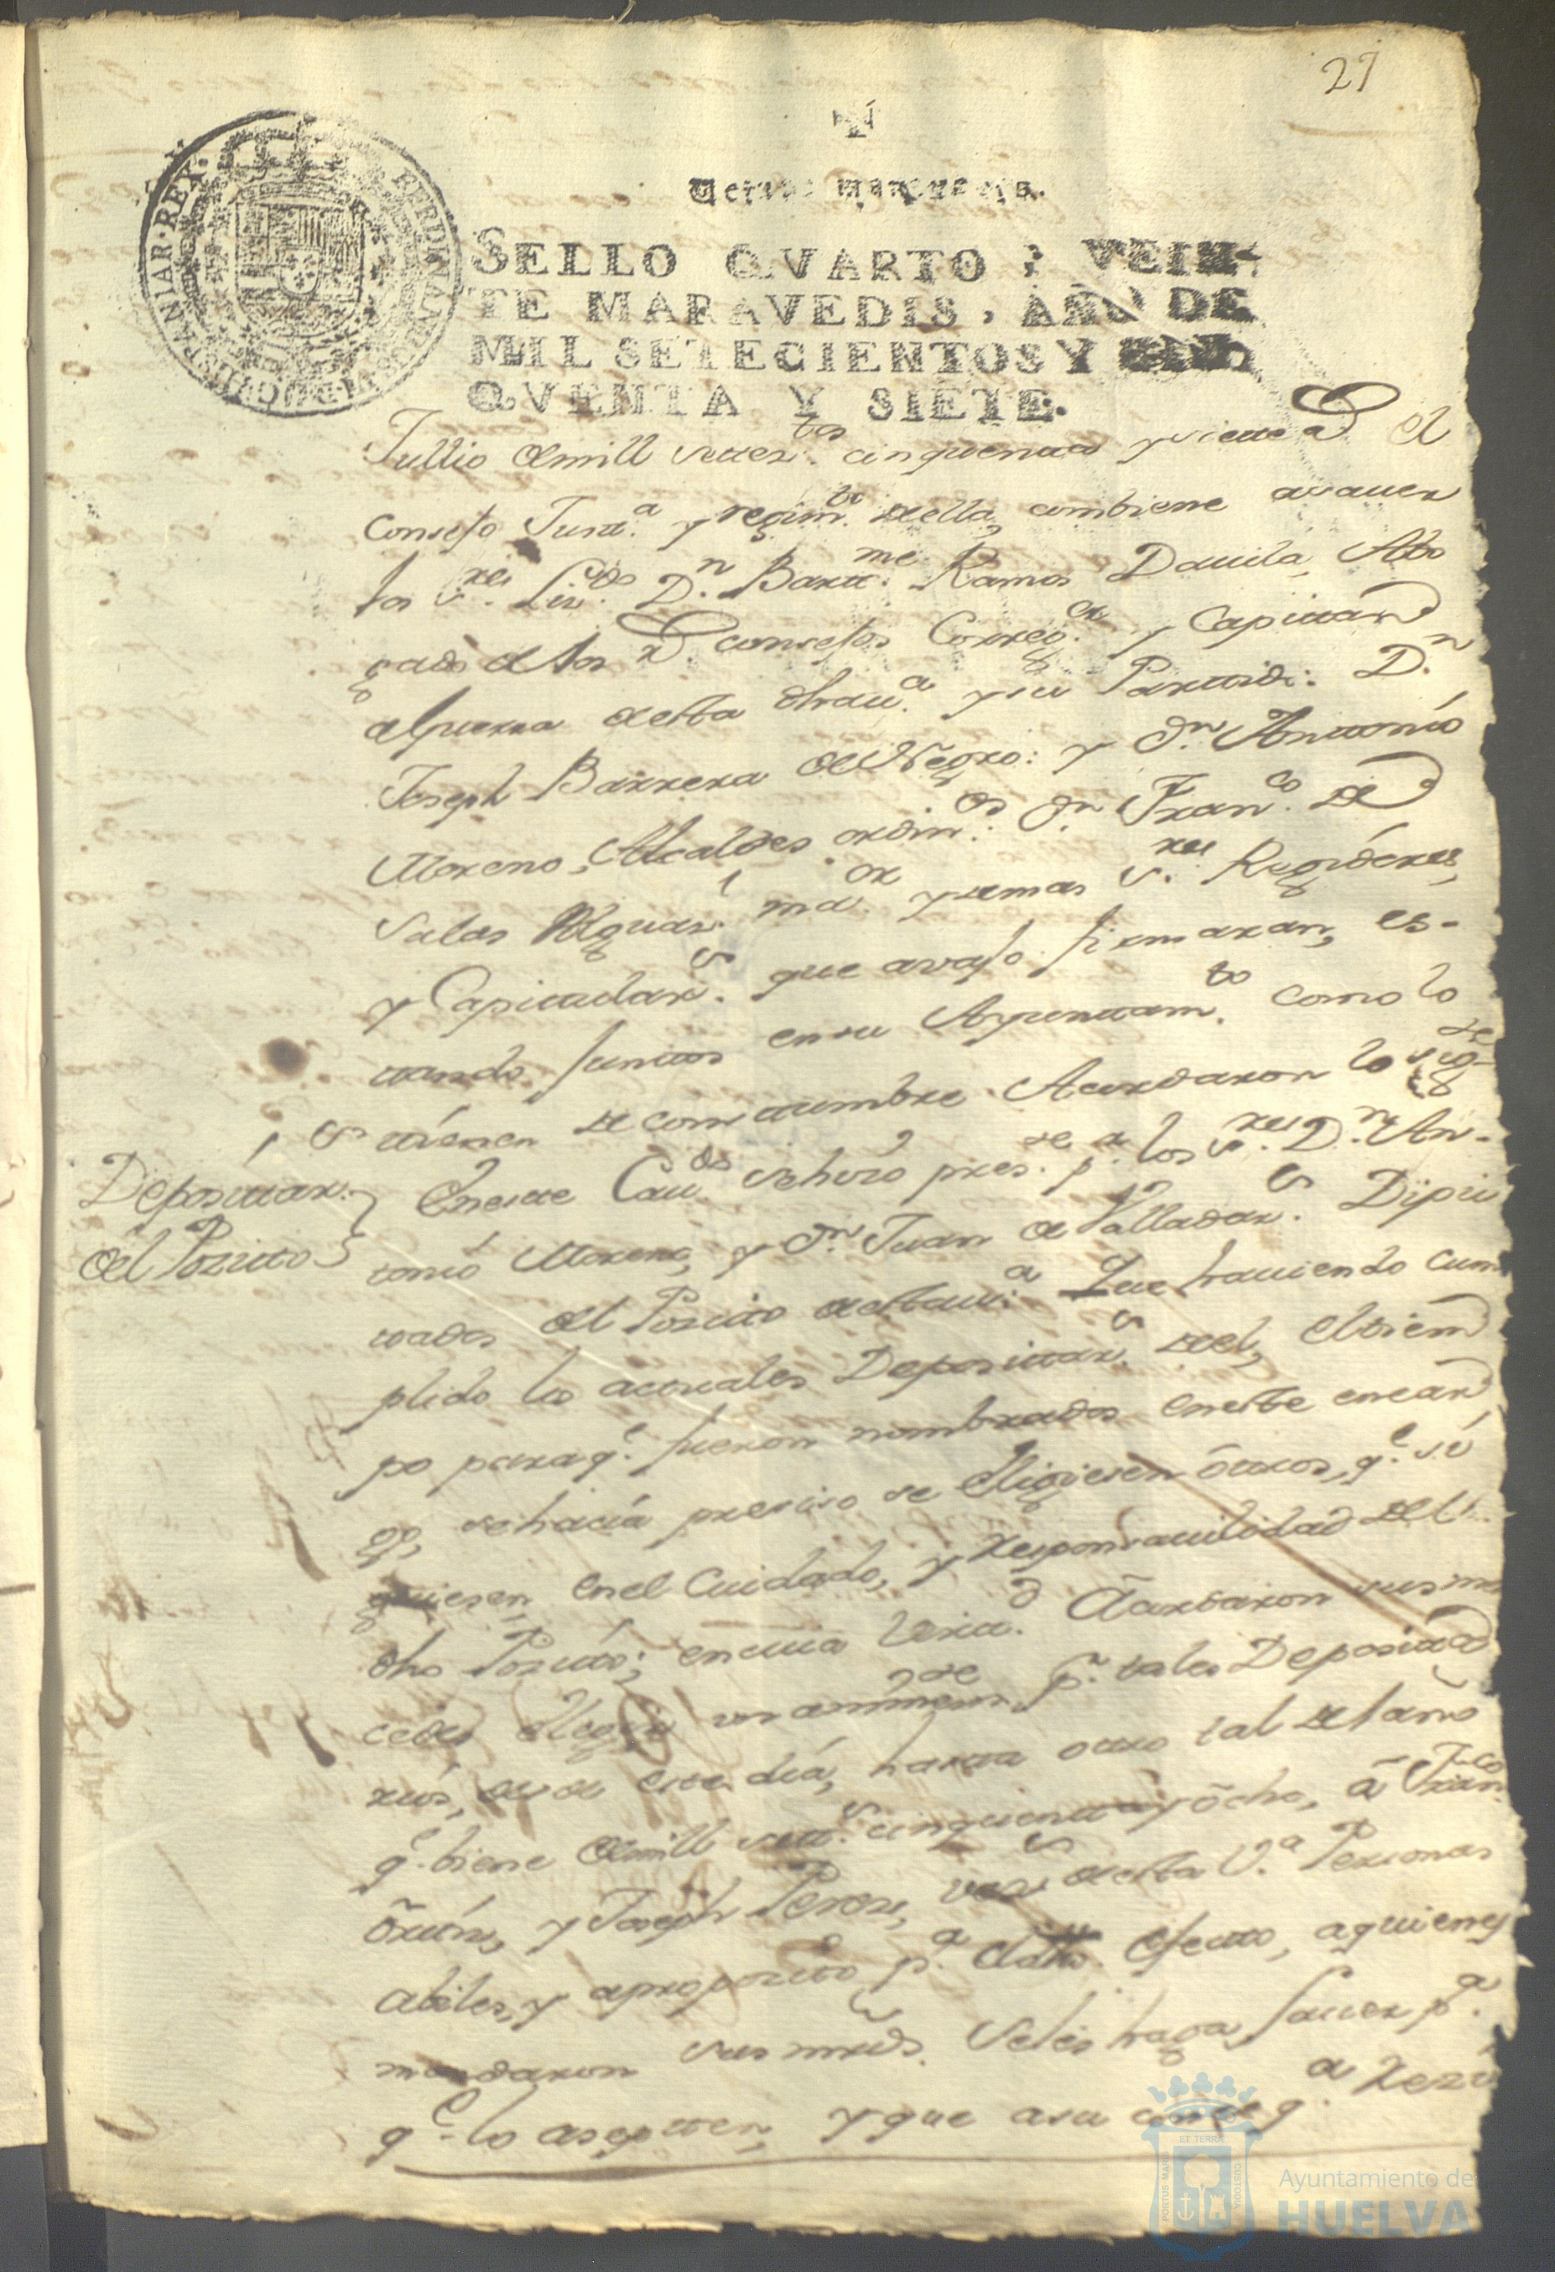 27
SELLO QVARTO, VEIN-
TE MARAVEDIS, AÑO DE
MIL SETECIENTOS Y CIN
QVENTA Y SIETE.
HISPANIAR·REX·
Jullio de mill setez.tos cinquenta y siette a.s el
Consejo Just.a y regim.to della, combiene a saver
los S.res Liz.do D.n Bartt.me Ramos Davila, Abo
gado de los R.s consejos Correg.or y Capittan
a Guerra de esta dha v.a y su Parttido: D.n
Joseph Barrera de Negro: y D.n Antonio
Moreno, Alcaldes ordin.os D.n Fran.co de
Salas Alguaz.l ma.or y demas S.res Regidores,
y Capittular.s que avajo firmaran, es-
tando junttos en su Ayunttam.to como lo
tienen de costtumbre Acordaron lo sig.te
Deposittar.s
del Pozitto
En este Cav.do se hizo pres.te p.r los S.res D.n An-
tonio Moreno, y D.n Juan de Valladar.s Dipu
tados del Pozitto de esta v.a Que haviendo cum
plido los actuales Deposittar.s del, el tiem
po para q.e fueron nombrados en este encar
go, se hacia preciso se eligiesen ottros, q.e si
guiesen en el Cuidado, y responsavilidad del
dho Pozitto; en cuia virtt.d Acordaron sus mer
cedes elegir unanimem.te p.r tales Deposita
rios, desde este dia, hasta otro tal del año
q.e biene de mill sett.s cinquenta y ocho, â Fran.co
Ortiz, y Joseph Perez, vez.s de esta V.a Personas
abiles, y a proposito p.a dho efecto, a quienes
mandaron sus mrds. se les haga saver p.a
q.e lo aseptten, y que a su conseq.a
Ayuntamiento de
HUELVA
PORTUS MARIS
ET TERRÆ
CUSTODIA